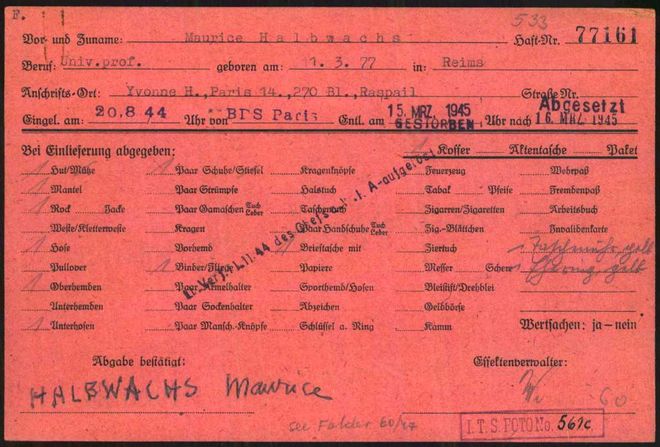 F.
533
Vor- und Zuname: Maurice Halbwachs Haft-Nr. 77161
Beruf: Univ.prof. geboren am: 11.3.77 in: Reims
Anschrifts-Ort: Yvonne H.,Paris 14.,270 Bl.,Raspail Straße Nr.
Eingel. am: 20.8 44 Uhr von BDS Paris Entl. am 15. MRZ. 1945 GESTORBEN Uhr nach Abgesetzt 16. MRZ. 1945
Bei Einlieferung abgegeben: 1 Koffer Aktentasche Paket
1 Hut/Mütze 1 Paar Schuhe/Stiefel Kragenknöpfe Feuerzeug Wehrpaß
1 Mantel Paar Strümpfe Halstuch Tabak Pfeife Fremdenpaß
1 Rock Jacke Paar Gamaschen Tuch Leder Taschentuch Zigarren/Zigaretten Arbeitsbuch
Weste/Kletterweste Kragen Paar Handschuhe Tuch Leder Zig.-Blättchen Invalidenkarte
1 Hose Vorhemd 1 Brieftasche mit Ziertuch 1 Taschenuhr gelb
Pullover 1 Binder/Fliege Papiere Messer Schere 1 Ehering gelb
1 Oberhemden Paar Ärmelhalter Sporthemd/Hosen Bleistift/Drehblei
Unterhemden Paar Sockenhalter Abzeichen Geldbörse
1 Unterhosen Paar Mansch.-Knöpfe Schlüssel a. Ring Kamm Wertsachen: ja—nein
44 des A-aufgeho
Abgabe bestätigt: Effektenverwalter:
HALBWACHS Maurice
60
see Folder 60/47
I.T.S. FOTO No. 561c